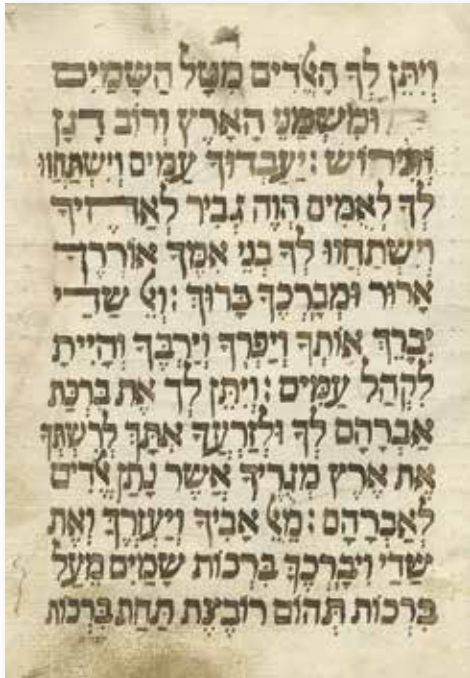 וְיִתֵּן לְךָ הָﭏֱדִים מִטַּל הַשָּׁמַיִם
וּמִשְׁמַנֵּי הָאָרֶץ וְרוֹב דָּגָן
וְתִירוֹשׁ : יַעַבְדוּךָ עַמִּים וְיִשְׁתַּחֲווּ
לְךָ לְאֻמִּים הֱוֵה גְבִיר לְאַחֶיךָ
וְיִשְׁתַּחֲווּ לְךָ בְּנֵי אִמֶּךָ אוֹרְרֶךָ
אָרוּר וּמְבָרְכֶךָ בָּרוּךְ : וְﭏֵ שַׁדַּי
יְבָרֵךְ אוֹתְךָ וְיַפְרְךָ וְיַרְבֶּךָ וְהָיִיתָ
לִקְהַל עַמִּים : וְיִתֵּן לְךָ אֶת בִּרְכַּת
אַבְרָהָם לְךָ וּלְזַרְעֲךָ אִתָּךְ לְרִשְׁתְּךָ
אֶת אֶרֶץ מְגֻרֶיךָ אֲשֶׁר נָתַן ﭏֱדִים
לְאַבְרָהָם : מֵﭏֵ אָבִיךָ וְיַעְזְרֶךָּ וְאֵת
שַׁדַּי וִיבָרְכֶךָּ בִּרְכוֹת שָׁמַיִם מֵעַל
בִּרְכוֹת תְּהוֹם רוֹבֶצֶת תַּחַת בִּרְכוֹת